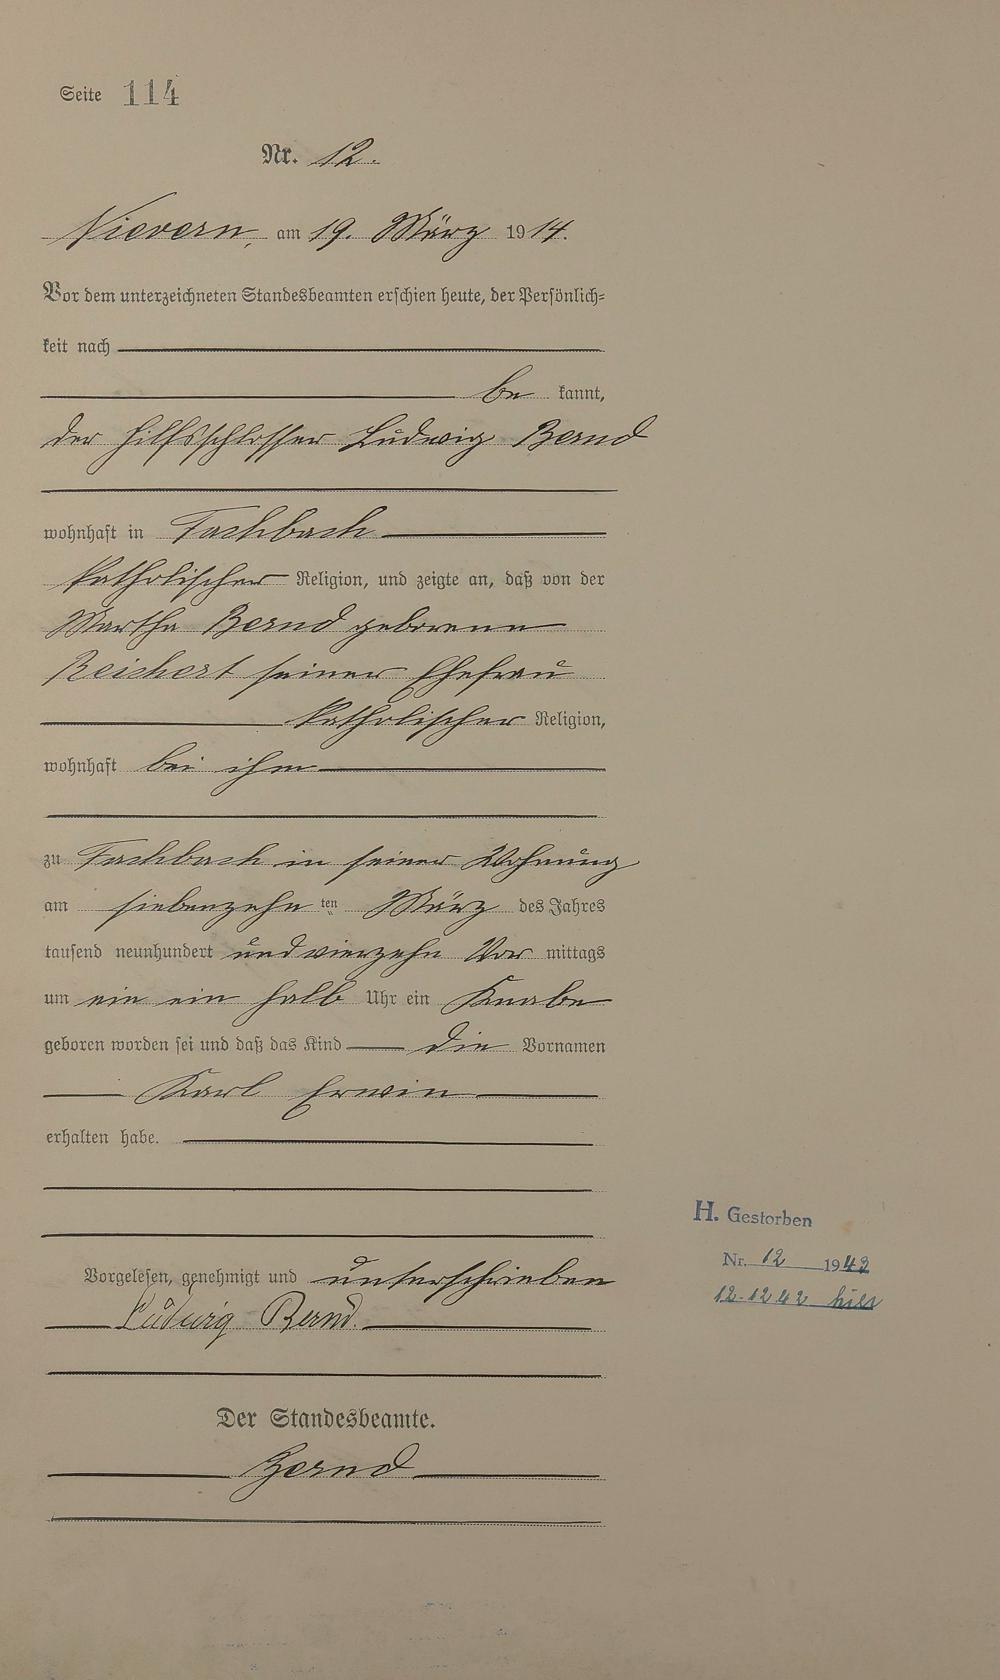 Seite 114
Nr. 12.
Nievern, am 19. März 1914.
Vor dem unterzeichneten Standesbeamten erschien heute, der Persönlich-
keit nach
be kannt,
der Hilfsschlosser Ludwig Bernd
wohnhaft in Fachbach
katholischer Religion, und zeigte an, daß von der
Martha Bernd geborenen
Reichert seiner Ehefrau
katholischer Religion,
wohnhaft bei ihm
zu Fachbach in seiner Wohnung
am siebenzehn ten März des Jahres
tausend neunhundert und vierzehn Vor mittags
um ein ein halb Uhr ein Knabe
geboren worden sei und daß das Kind die Vornamen
Karl Erwin
erhalten habe.
Vorgelesen, genehmigt und unterschrieben
Ludwig Bernd.
Der Standesbeamte.
H. Gestorben
Nr. 12 1942
12.12 42